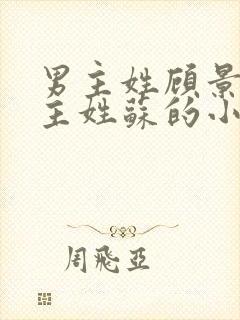 男主姓顾景
主姓蘇的小
周飛亞